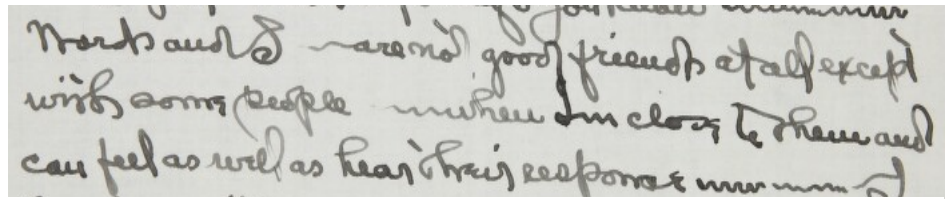 you know
Words and I — are not good friends at all except
with some people — when Im close to them and
can feel as well as hear their response — I